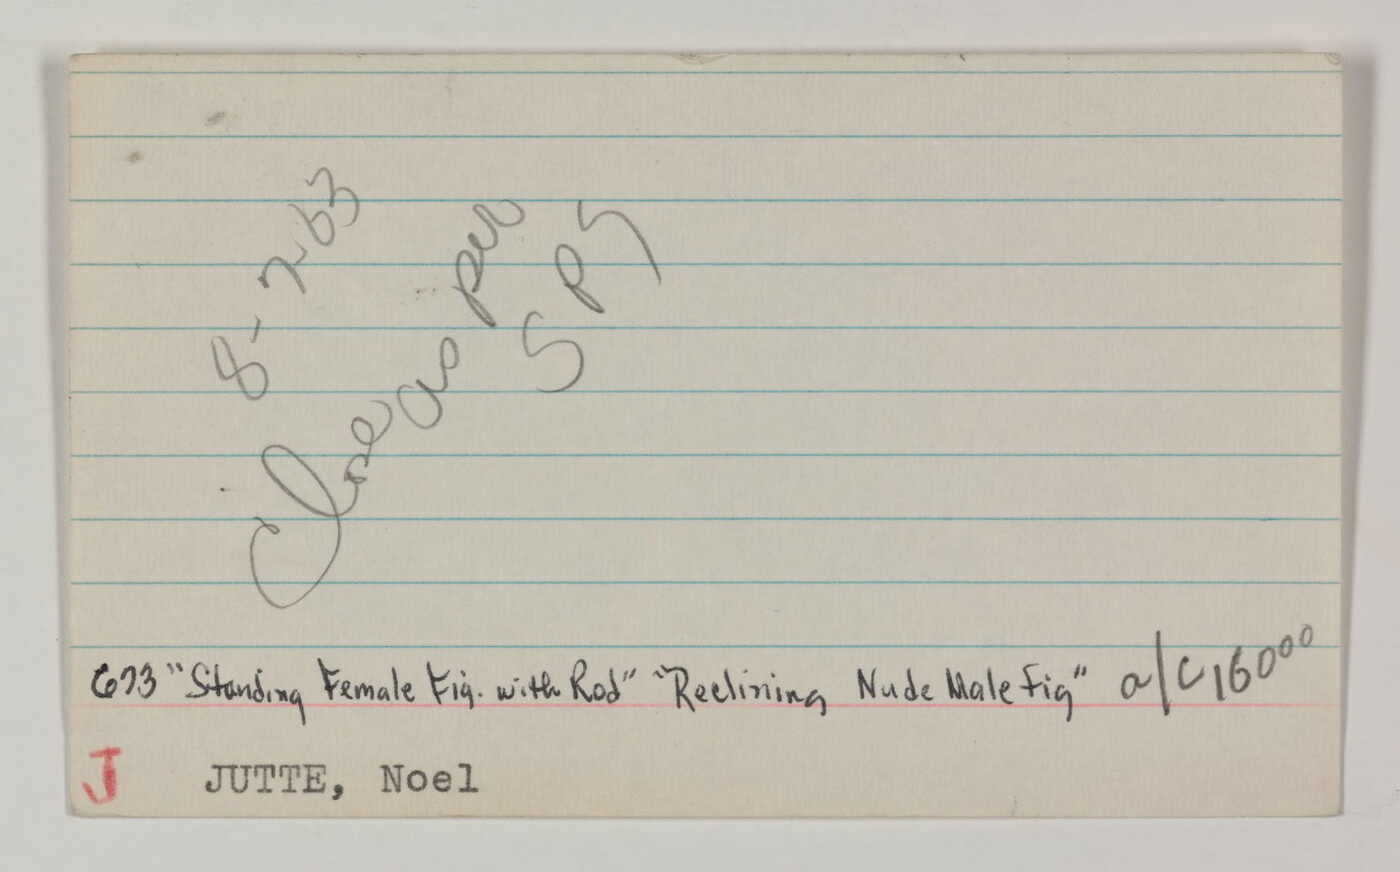 8-7-63
Close as per
S P S
673 "Standing Female Fig. with Rod" "Reclining Nude Male Fig" a/c 160⁰⁰
J JUTTE, Noel